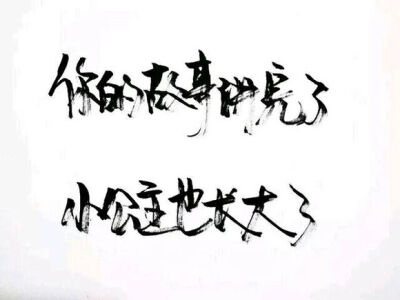 你的故事讲完了
小公主也长大了